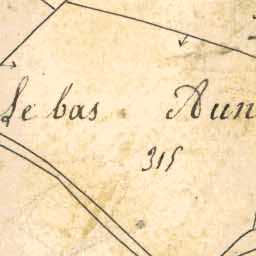 Le bas Aun
315